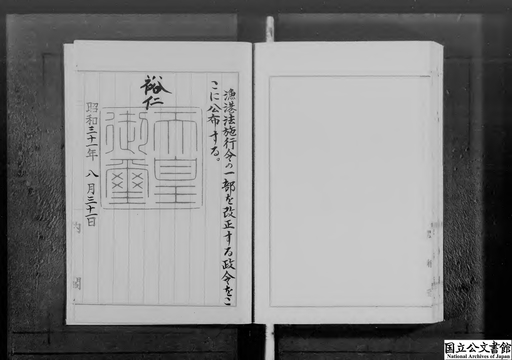 漁港法施行令の一部を改正する政令をこ
こに公布する。
裕仁
天皇
御璽
昭和三十一年八月三十一日
国立公文書館
National Archives of Japan